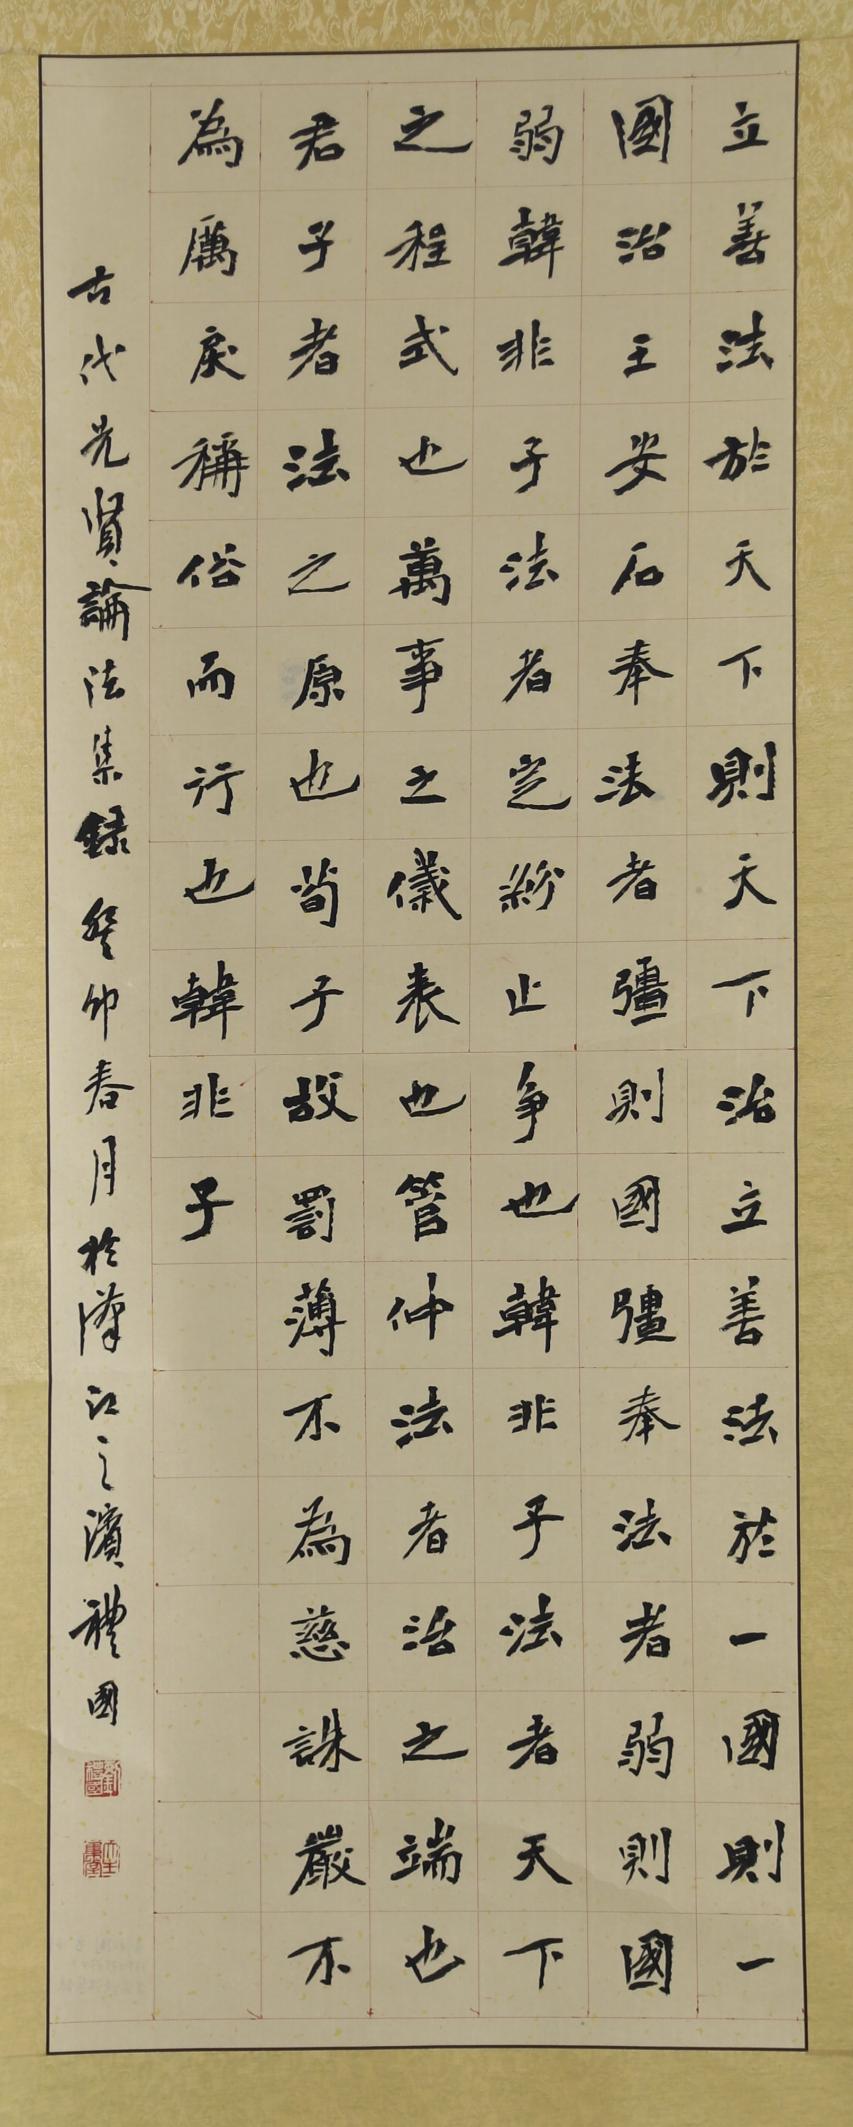 立善法於天下則天下治立善法於一國則一
國治王安石奉法者彊則國彊奉法者弱則國
弱韓非子法者定紛止争也韓非子法者天下
之程式也萬事之儀表也管仲法者治之端也
君子者法之原也荀子故罰薄不為慈誅嚴不
為厲戾稱俗而行也韓非子
古代先賢論法集録癸卯春月於漢江之濱禮國